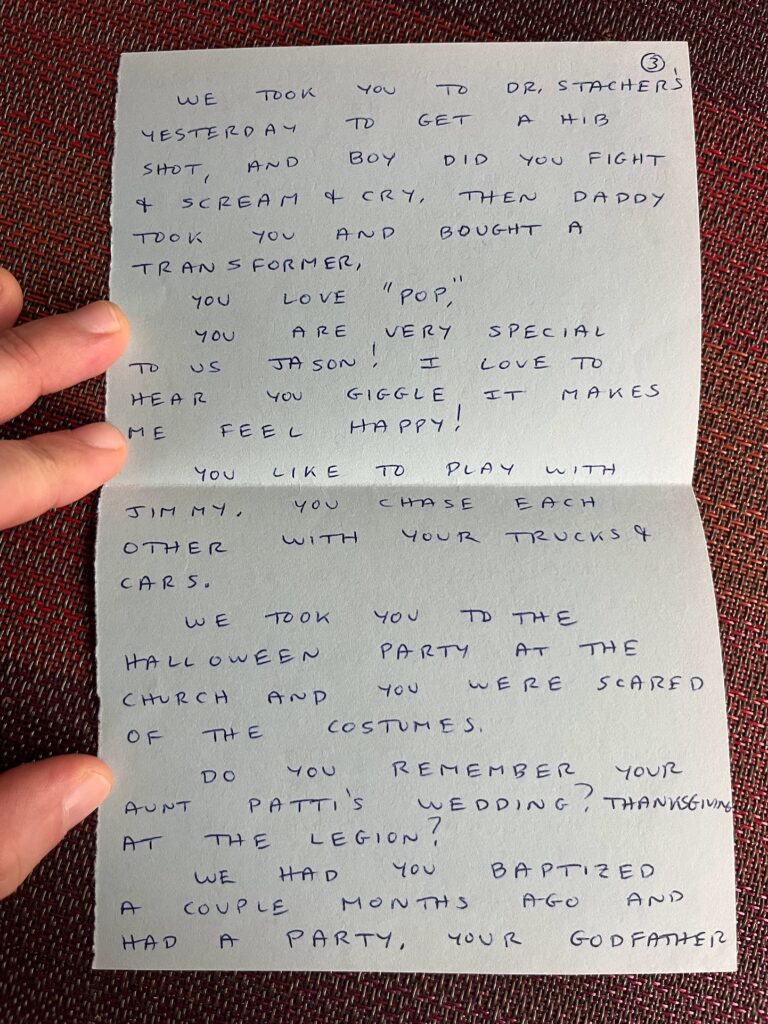 3
WE TOOK YOU TO DR. STACHER'S
YESTERDAY TO GET A HIB
SHOT, AND BOY DID YOU FIGHT
& SCREAM & CRY. THEN DADDY
TOOK YOU AND BOUGHT A
TRANSFORMER.
YOU LOVE "POP."
YOU ARE VERY SPECIAL
TO US JASON! I LOVE TO
HEAR YOU GIGGLE. IT MAKES
ME FEEL HAPPY!
YOU LIKE TO PLAY WITH
JIMMY. YOU CHASE EACH
OTHER WITH YOUR TRUCKS &
CARS.
WE TOOK YOU TO THE
HALLOWEEN PARTY AT THE
CHURCH AND YOU WERE SCARED
OF THE COSTUMES.
DO YOU REMEMBER YOUR
AUNT PATTI'S WEDDING? THANKSGIVING
AT THE LEGION?
WE HAD YOU BAPTIZED
A COUPLE MONTHS AGO AND
HAD A PARTY. YOUR GODFATHER